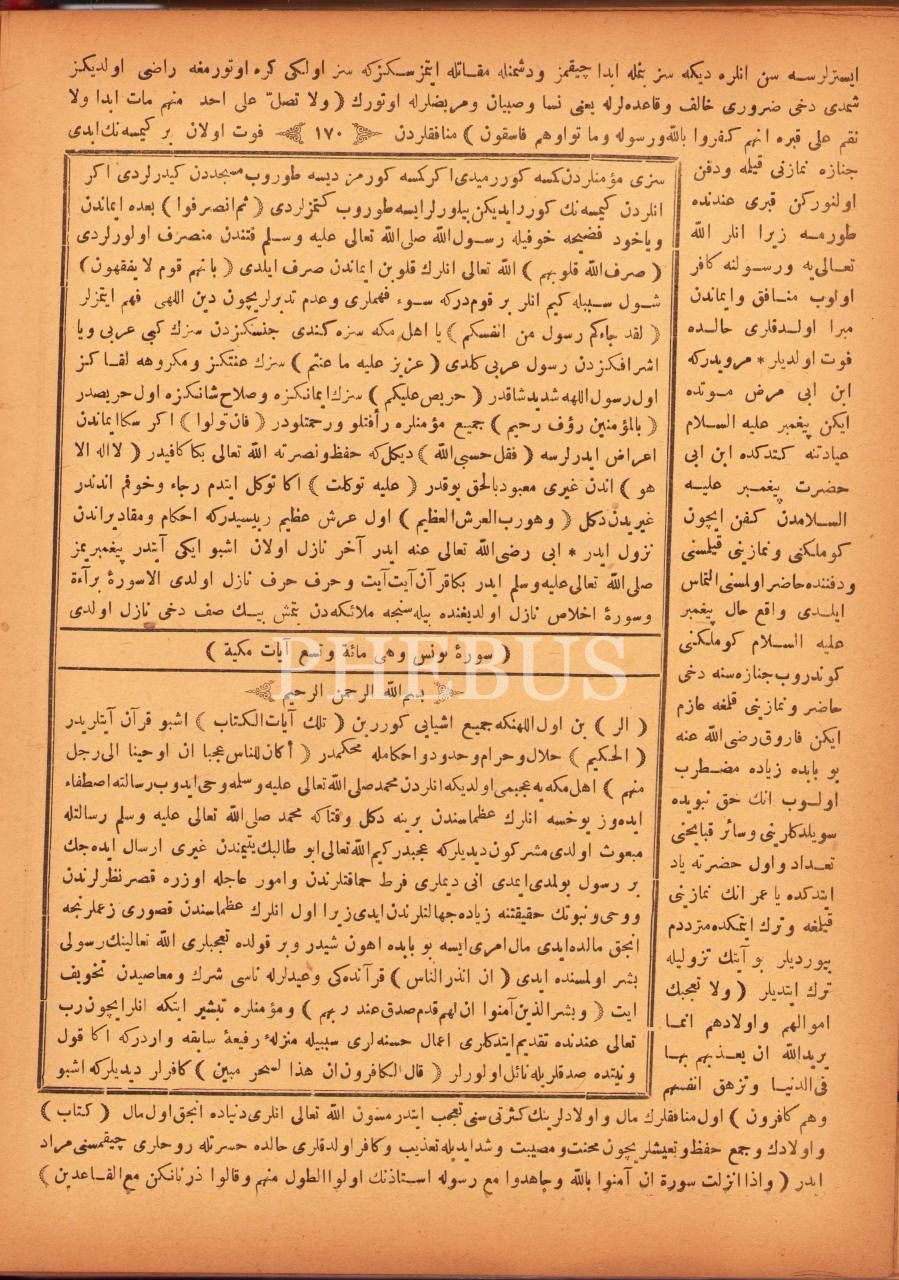 ایسترلرسه سن انلره دیکه سز بنمله ابدا چیقمز ودشمنله مقاتله ایتمزسکز که سز اولکی کره اوتورمغه راضی اولدیکز
شمدی دخی ضروری خالف وقاعدلرله یعنی نسا وصبیان ومریضلرله اوتورك ( ولا تصلّ علی احد منهم مات ابدا ولا
تقم علی قبره انهم کفروا بالله ورسوله وما توا وهم فاسقون ) منافقلردن ١٧٠ فوت اولان بر کیمسه نك ابدی
جنازه نمازنی قیلمه ودفن
اولنورکن قبری عندنده
طورمه زیرا انلر الله
تعالی یه ورسولنه کافر
اولوب منافق وایماندن
مبرا اولدقلری حالده
فوت اولدیلر * مرویدرکه
ابن ابی مرض موتده
ایکن پیغمبر علیه السلام
عیادتنه کتدکده ابن ابی
حضرت پیغمبر علیه
السلامدن کفن ایچون
کوملکنی ونمازینی قیلمسنی
ودفننده حاضر اولمسنی التماس
ایلدی واقع حال پیغمبر
علیه السلام کوملکنی
کوندروب جنازه سنه دخی
حاضر ونمازینی قلمغه عازم
ایکن فاروق رضی الله عنه
بو بابده زیاده مضطرب
اولوب انك حق نبویده
سویلدکلرینی وسائر قبایحنی
تعداد واول حضرته یاد
ایتدکده یا عمر انك نمازینی
قیلمغه وترك ایتمکده مترددم
بیوردیلر بو آیتك نزولیله
ترك ایتدیلر ( ولا تعجبك
اموالهم واولادهم انما
یریدالله ان یعذبهم بها
فی الدنیا وتزهق انفسهم
سزی مؤمنلردن کمسه کوررمیدی اکر کمسه کورمز دیسه طوروب مسجددن کیدرلردی اکر
انلردن کیمسه نك کوررایدیکن بیلورلرایسه طوروب کتمزلردی ( ثم انصرفوا ) بعده ایماندن
ویاخود فضیحه خوفیله رسول الله صلی الله تعالی علیه وسلم قتندن منصرف اولورلردی
( صرف الله قلوبهم ) الله تعالی انلرك قلوبن ایماندن صرف ایلدی ( بانهم قوم لا یفقهون )
شول سببله کیم انلر بر قومدرکه سوء فهملری وعدم تدبرلریچون دین اللهی فهم ایتمزلر
( لقد جاءکم رسول من انفسکم ) یا اهل مکه سزه کندی جنسکزدن سزك کبی عربی ویا
اشرافکزدن رسول عربی کلدی ( عزیز علیه ما عنتم ) سزك عنتکز ومکروهه لقاکز
اول رسول اللهه شدید شاقدر ( حریص علیکم ) سزك ایمانکزه وصلاح شانکزه اول حریصدر
( بالمؤمنین رؤف رحیم ) جمیع مؤمنلره رأفتلو ورحمتلودر ( فان تولوا ) اکر سکا ایماندن
اعراض ایدرلرسه ( فقل حسبی الله ) دیکل که حفظ ونصرته الله تعالی بکا کافیدر ( لا اله الا
هو ) اندن غیری معبود بالحق یوقدر ( علیه توکلت ) اکا توکل ایتدم رجاء وخوفم اندندر
غیریدن دکل ( وهو رب العرش العظیم ) اول عرش عظیم ربیسیدرکه احکام ومقادیر اندن
نزول ایدر * ابی رضی الله تعالی عنه ایدر آخر نازل اولان اشبو ایکی آیتدر پیغمبریمز
صلی الله تعالی علیه وسلم ایدر بکا قرآن آیت آیت وحرف حرف نازل اولدی الا سورۀ برآءة
وسورۀ اخلاص نازل اولدیغنده بیله سنجه ملائکه دن یتمش بیك صف دخی نازل اولدی
( سورۀ یونس وهی مائة وتسع آیات مکیة )
بسم الله الرحمن الرحیم
( الر ) بن اول اللهمکه جمیع اشیایی کوررین ( تلك آیات الکتاب ) اشبو قرآن آیتلریدر
( الحکیم ) حلال وحرام وحدود واحکامله محکمدر ( أکان للناس عجبا ان اوحینا الی رجل
منهم ) اهل مکه یه عجبمی اولدیکه انلردن محمد صلی الله تعالی علیه وسلمه وحی ایدوب رسالته اصطفاء
ایده وز بوخسه انلرك عظماسندن برینه دکل وقتاکه محمد صلی الله تعالی علیه وسلم رسالتله
مبعوث اولدی مشرکون دیدیلرکه عجبدر کیم الله تعالی ابو طالبك یتیمندن غیری ارسال ایده جك
بر رسول بولمدی ایمدی انی دیملری فرط حماقتلرندن وامور عاجله اوزره قصر نظرلرندن
ووحی ونبوتك حقیقتنه زیاده جهالتلرندن ایدی زیرا اول انلرك عظماسندن قصوری زعملرنجه
انجق مالده ایدی مال امری ایسه بو بابده اهون شیدر وبر قولده تعجبلری الله تعالینك رسولی
بشر اولمسنده ایدی ( ان انذر الناس ) قرآنده کی وعیدلرله ناسی شرك ومعاصیدن تخویف
ایت ( وبشر الذین آمنوا ان لهم قدم صدق عند ربهم ) ومؤمنلره تبشیر ایتکه انلرایچون رب
تعالی عندنده تقدیم ایتدکلری اعمال حسنه لری سببیله منزلۀ رفیعۀ سابقه واردرکه اکا قول
ونیتده صدقلریله نائل اولورلر ( قال الکافرون ان هذا لسحر مبین ) کافرلر دیدیلرکه اشبو
وهم کافرون ) اول منافقلرك مال واولادلرینك کثرتی سنی تعجب ایتدرمسون الله تعالی انلری دنیاده انجق اول مال ( کتاب )
واولادك وجمع حفظ وتعیشلریچون محنت ومصیبت وشدایدیله تعذیب وکافر اولدقلری حالده حسرتله روحلری چیقمسنی مراد
ایدر ( واذا انزلت سورة ان آمنوا بالله وجاهدوا مع رسوله استاذنك اولوا الطول منهم وقالوا ذرنا نکن مع القاعدین )
PHEBUS